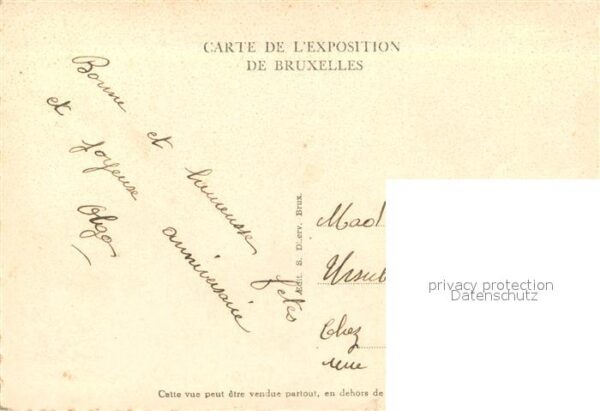 CARTE DE L'EXPOSITION
DE BRUXELLES
Bonne et heureuse fêtes
et joyeuse anniversaire
Olga
Edit. S. D'Herv. Brux.
Mad
Ursul
Chez
rue
privacy protection
Datenschutz
Cette vue peut être vendue partout, en dehors de